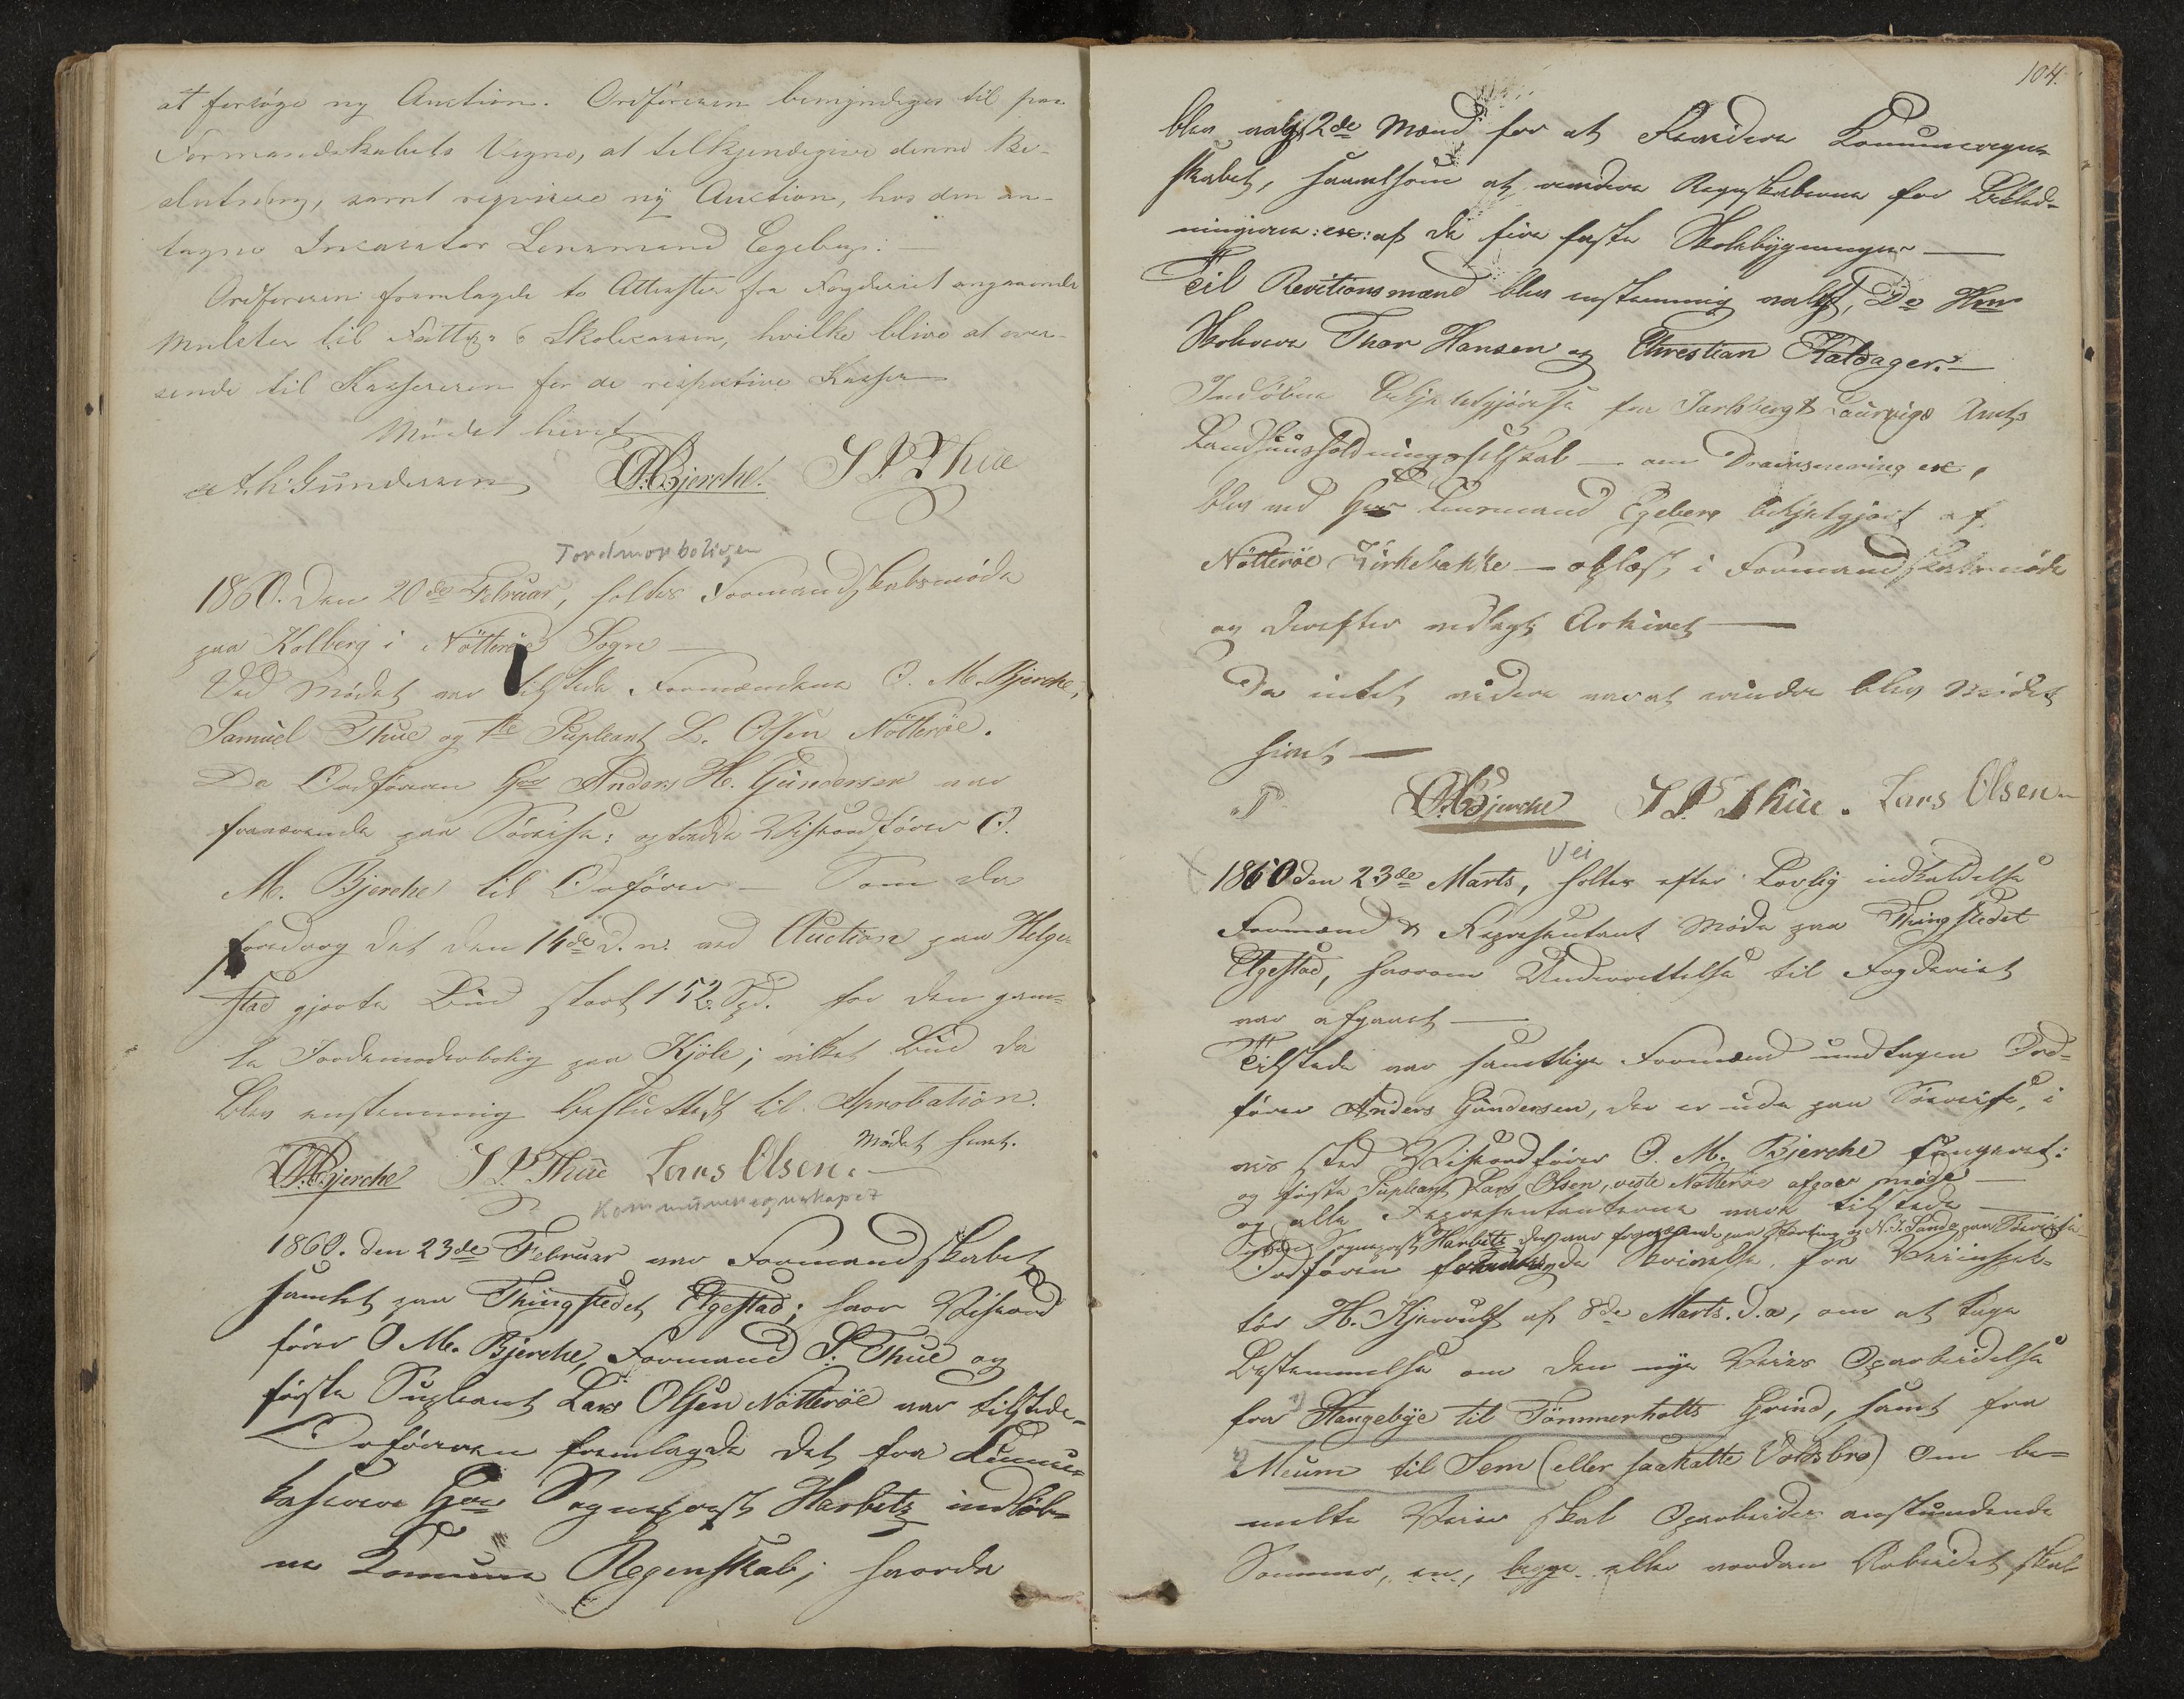 at forsøge ny Auction. Ordføreren bemyndiges til paa
Formandskabets Vegne, at tilkjendegive denne Be-
slutning, samt reqvirere ny Auction, hos den an-
tagne Incasator Lensmand Egeberg.
Ordføreren fremlagde to Attester fra Fogderiet angaaende
Mulkter til Fattig- & Skolecassen, hvilke blive at over-
sende til Kassereren for de respective Kasser
Mødet hævet
A. H. Gundersen OMBjerche. S P Thue
Jordmorboligen
1860. Den 20de Februar, holdes Formandskabsmøde
paa Kolberg i Nötteröe Sogn
Ved Mødet var tilstede Formændene O. M. Bjerche,
Samuel Thue og 1te Supleant L. Olsen Nötteröe.
Da Ordføreren Hr Anders H. Gundersen var
fraværende paa Søreise: optradte Viseordfører O.
M. Bjerche til Ordfører – Som da
foredrog det den 14de D. m. ved Auction paa Helge-
stad gjorte Bud stort 152 Spd. for den gam-
le Jordemoderbolig paa Kjöle; vilket Bud da
blev enstemmig besluttet til Aprobation.
Mødet hævet.
OMBjerche S P Thue Lars Olsen.
Kommuneregnskapet
1860. den 23de Februar var Formandskabet
samlet paa Thingstedet Elgestad; hvor Viseord
fører O M. Bjerche, Formand S. Thue og
første Supleant Lars Olsen Nötteröe var tilstede.
Ordføreren fremlagde det fra Komune-
kaserer Herr Sogneprest Harbitz indløb-
ne Komune Regenskab; hvorda
104.
blev valgt 2de Mænd for at Revidere Komuneregn-
skabet, saavelsom at revidere Regnskaberne for Bekled-
ningerne :ex: af de fire faste Skolebygninger
Til Revitionsmænd blev enstemmig valgt, De Hrr
Skolerer Thor Hansen og Christian Faldager.
Indløben bekjendtgjørelse fra Jarlsberg & Laurvigs Amts
Landhuusholdningsselskab — om Drainsnering ex,
blev ved Herr Lensmand Egeberg bekjentgjort af
Nötteröe Kirkebakke — oplæst, i Formandskabsmøde
og derefter vedlagt Arkivet
Da intet videre var at vinde blev Mødet
hævet
OMBjerche S P Thue. Lars Olsen
Vei
1860 den 23de Marts, holtes efter Lovlig indkaldelse
Formænd & Representant Møde paa Thingstedet
Elgestad, hvorom Underrettelse til Fogderiet
var afgaaet
Tilstede var samtlige Formænd undtagen Ord-
fører Anders Gundersen, der er ude paa Søereise, i
vis sted Viseordfører O. M. Bjerche fungeret:
og første Supleant Lars Olsen, veste Nötteröe afgaar møde
og alle Representanterne vare tilstede
Sogneprest Harbitz der var fraværende paa Storting og N. J. Sande paa Søereise
Ordføren fremlagde Skrivelse fra Veiinspek-
tør H. Kjerulf af 8de Marts. d. a, om at tage
Bestemmelse om den nye Veies Oparbeidelse
fra 1) Hangebye til Tömmerholts Grind, samt fra
2) Meum til Sem (eller saakalte Voldsbro) Om be-
melte Veier skal Oparbeides anstundende
Sommer, en, begge eller vordan Arbeidet skal